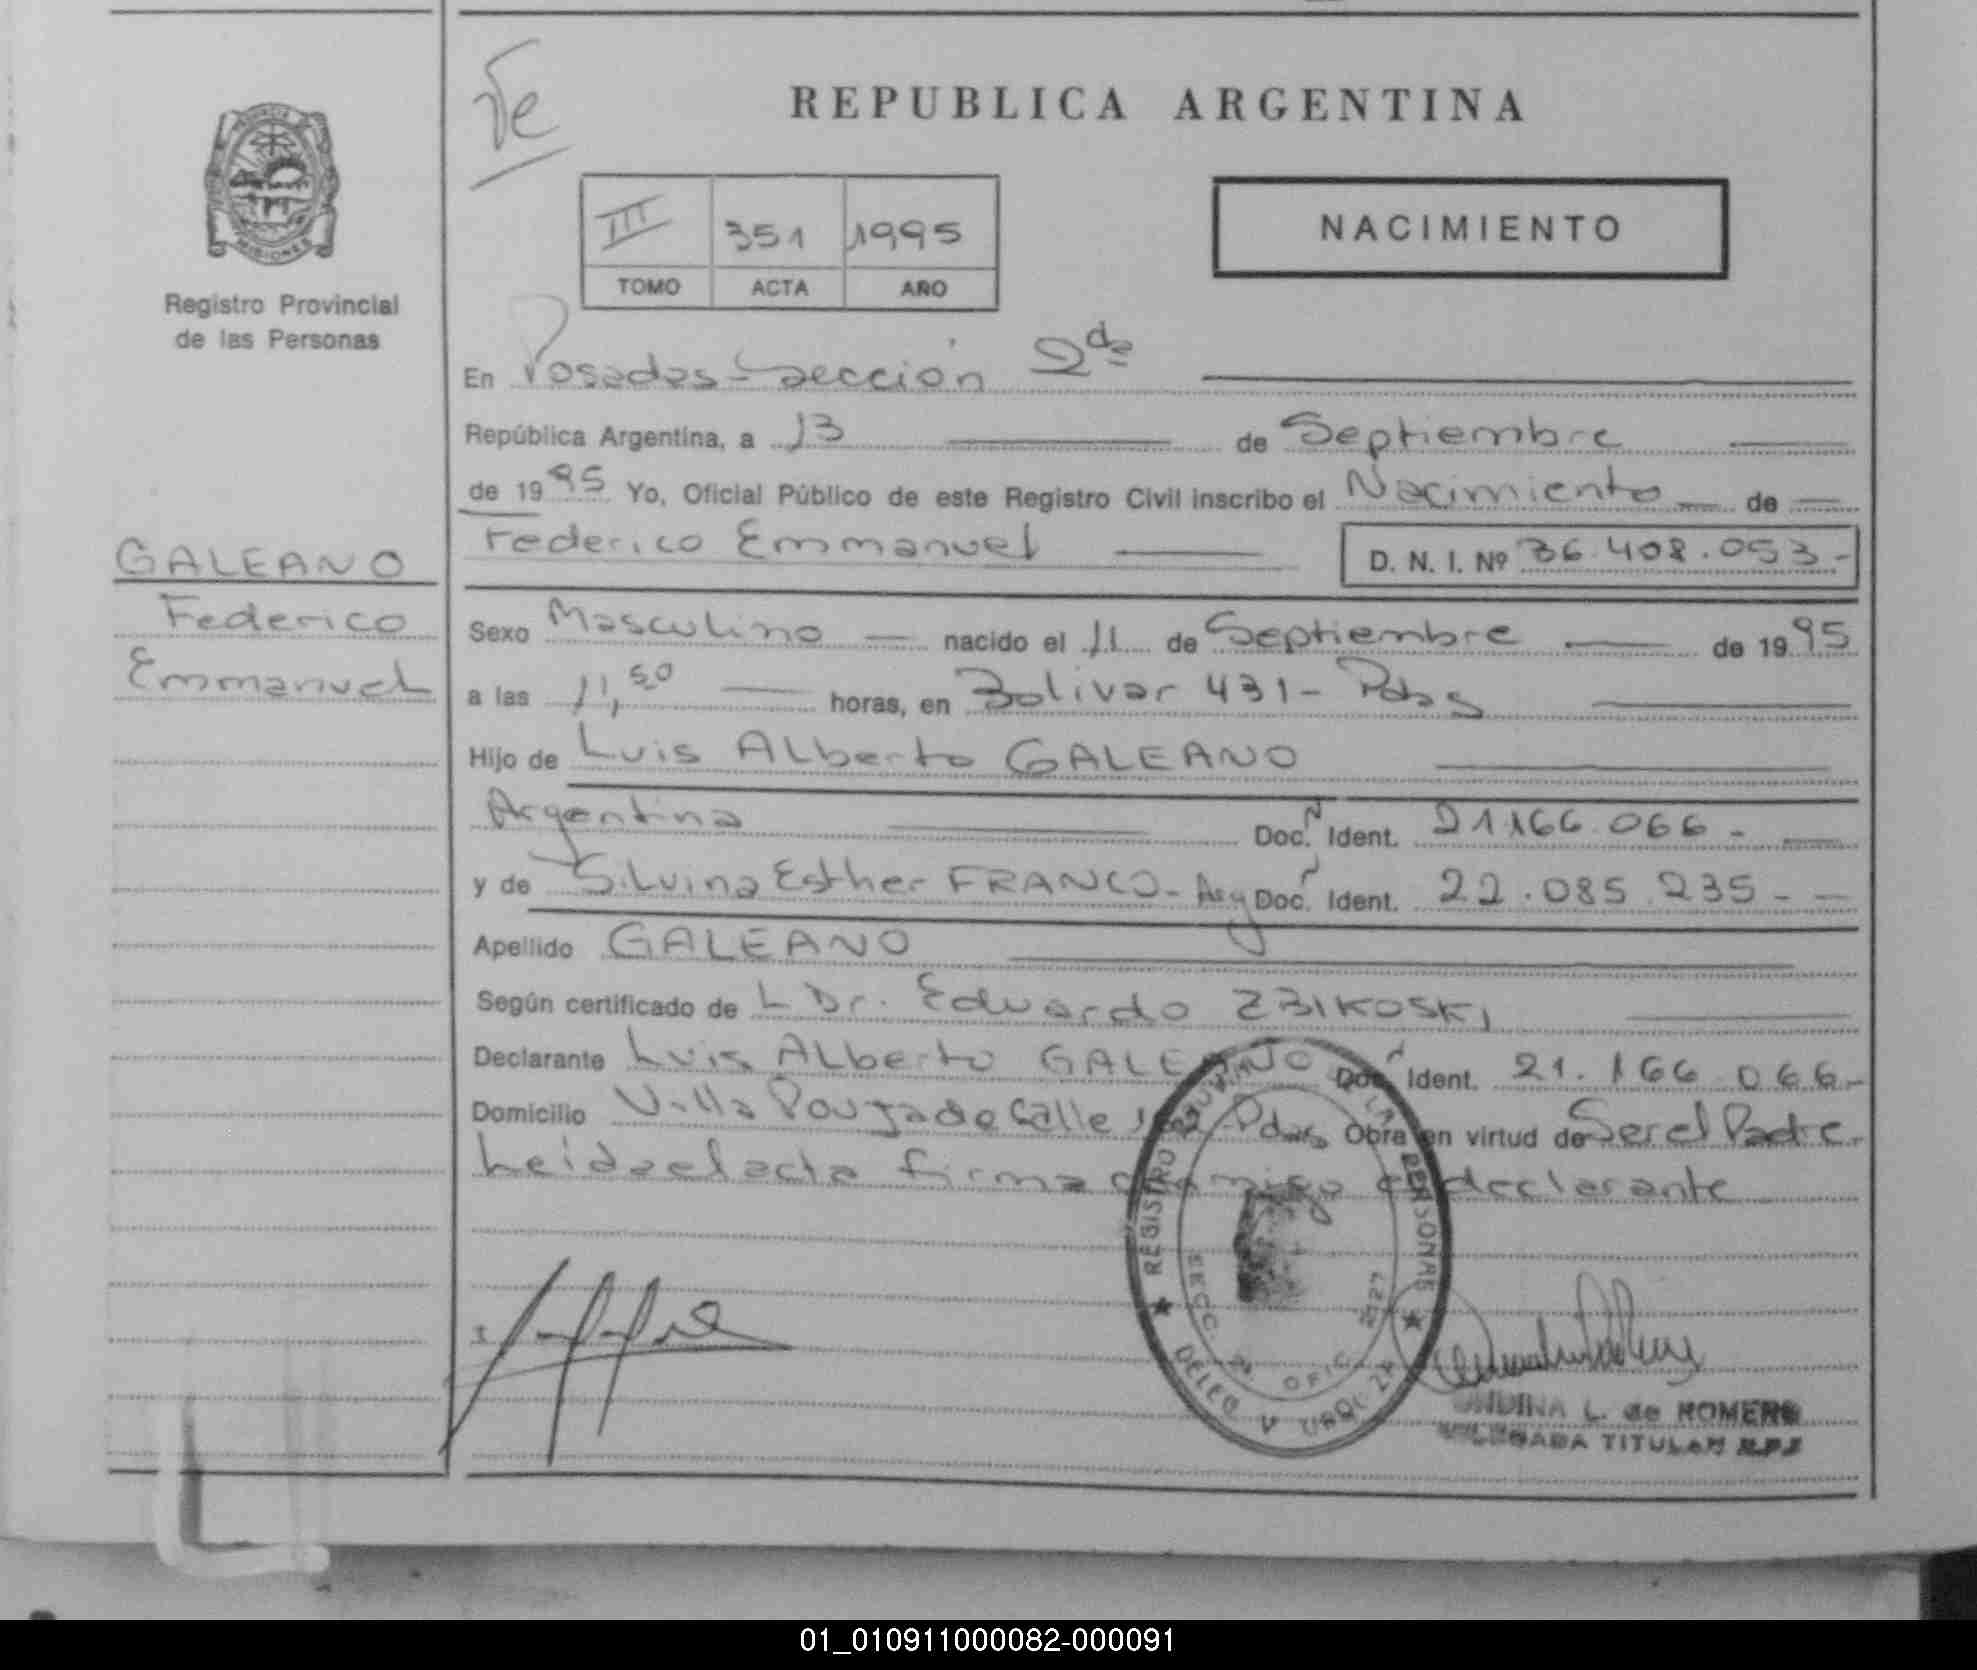 Te
REPUBLICA ARGENTINA
NACIMIENTO
III 351 1995
TOMO ACTA AÑO
PROVINCIA
MISIONES
Registro Provincial
de las Personas
GALEANO
Federico
Emmanuel
En Posadas-Sección 2da
República Argentina, a 13 de Septiembre
de 1995 Yo, Oficial Público de este Registro Civil inscribo el Nacimiento de
Federico Emmanuel D. N. I. Nº 36.408.053-
Sexo Masculino nacido el 11 de Septiembre de 1995
a las 11,50 horas, en Bolivar 431- Pdas
Hijo de Luis Alberto GALEANO
Argentina Doc. Ident. 21.166.066-
y de Silvina Esther FRANCO- Arg Doc. Ident. 22.085.235-
Apellido GALEANO
Según certificado de L Dr. Eduardo ZBIKOSKI
Declarante Luis Alberto GALEANO Doc. Ident. 21.166.066-
Domicilio Villa Calle Pdas Obra en virtud de Ser el Padre.
Leída el acta firma conmigo el declarante
REGISTRO DE LAS PERSONAS
SECC. 2a OFIC.
DELEG
URQUIZA
ONDINA L. de ROMERO
DELEGADA TITULAR
01_010911000082-000091